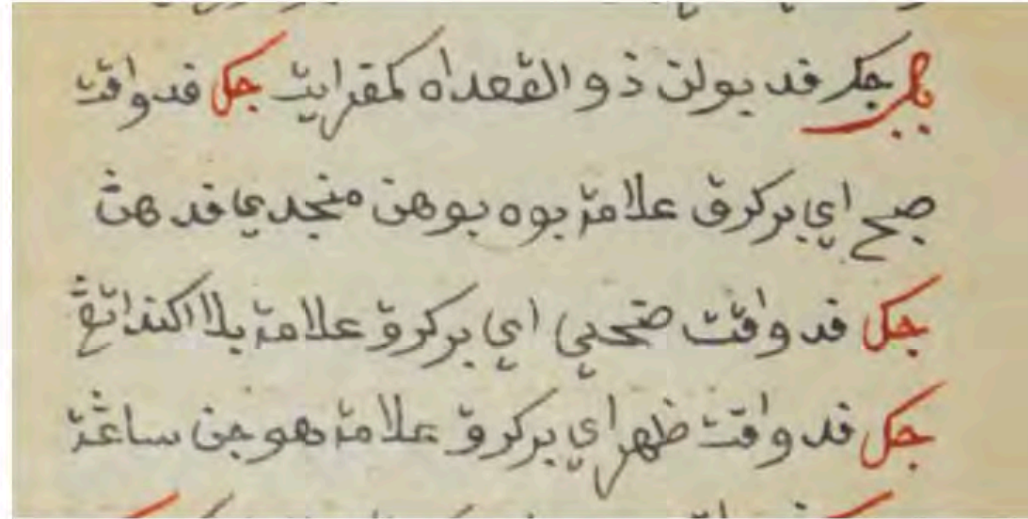 باب جکر فد بولن ذو القعداه کمقراىت جکل فد واقت
صبح اي برکرق علامة بوه بوهن منجدي فد هن
جکل فد واقتت ضحىي اي برکرق علامة بلا اکنداتڠ
جکل فد واقتت ظهر اي برکرق علامة هوجن ساڠة